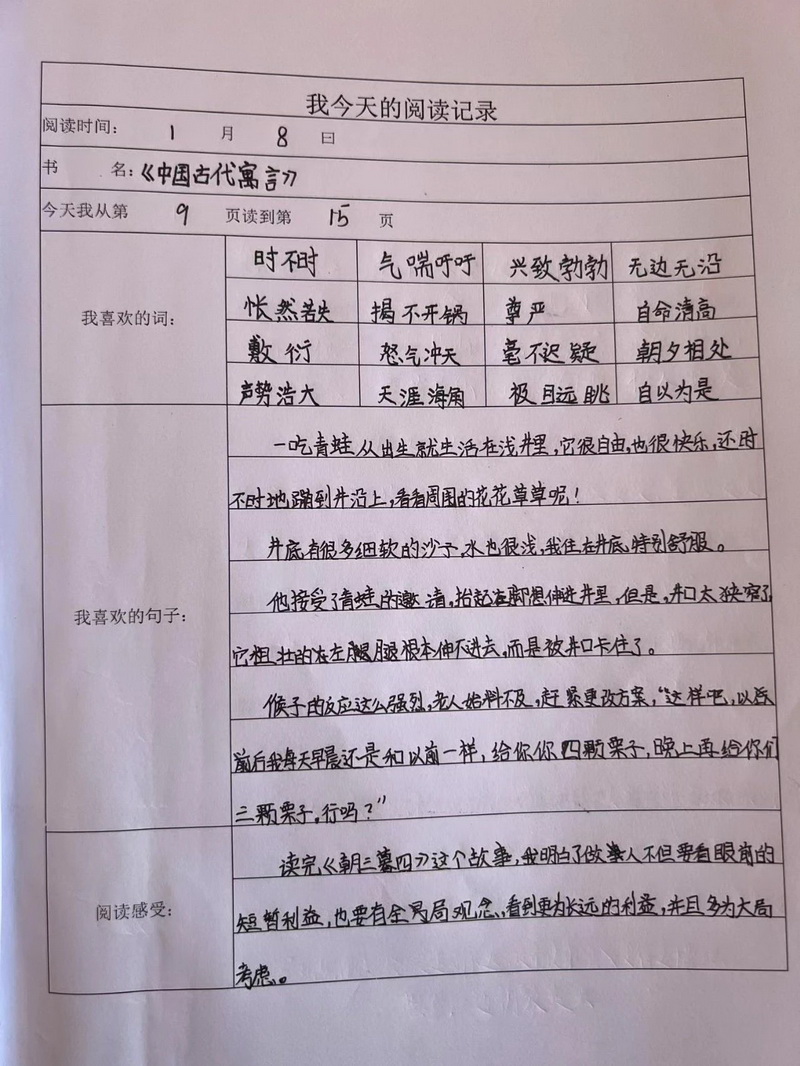 我今天的阅读记录
阅读时间： 1 月 8 日
书 名：《中国古代寓言》
今天我从第 9 页读到第 15 页
我喜欢的词：
时不时 气喘吁吁 兴致勃勃 无边无沿
怅然若失 揭不开锅 尊严 自命清高
敷衍 怒气冲天 毫不迟疑 朝夕相处
声势浩大 天涯海角 极目远眺 自以为是
我喜欢的句子：
一吃青蛙从出生就生活在浅井里，它很自由，也很快乐，还时
不时地蹦到井沿上，看看周围的花花草草呢！
井底有很多细软的沙子，水也很浅，我住在井底，特别舒服。
他接受了青蛙的邀请，抬起左脚想伸进井里，但是，井口太狭窄了
它粗壮的左腿根本伸不进去，而是被井口卡住了。
猴子的反应这么强烈，老人始料不及，赶紧更改方案，“这样吧，以后
前后我每天早晨还是和以前一样，给你你四颗栗子，晚上再给你们
三颗栗子，行吗？”
阅读感受：
读完《朝三暮四》这个故事，我明白了做人不但要看眼前的
短暂利益，也要有全局观念，看到更为长远的利益，并且多为大局
考虑。